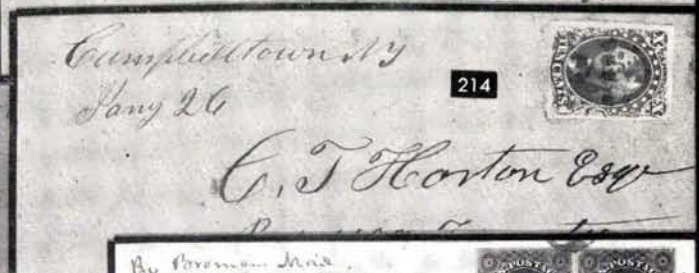 Campbelltown NY
Jany 26
214
C. T Horton Esqr
By Bremen Mail,
POSTA POSTA